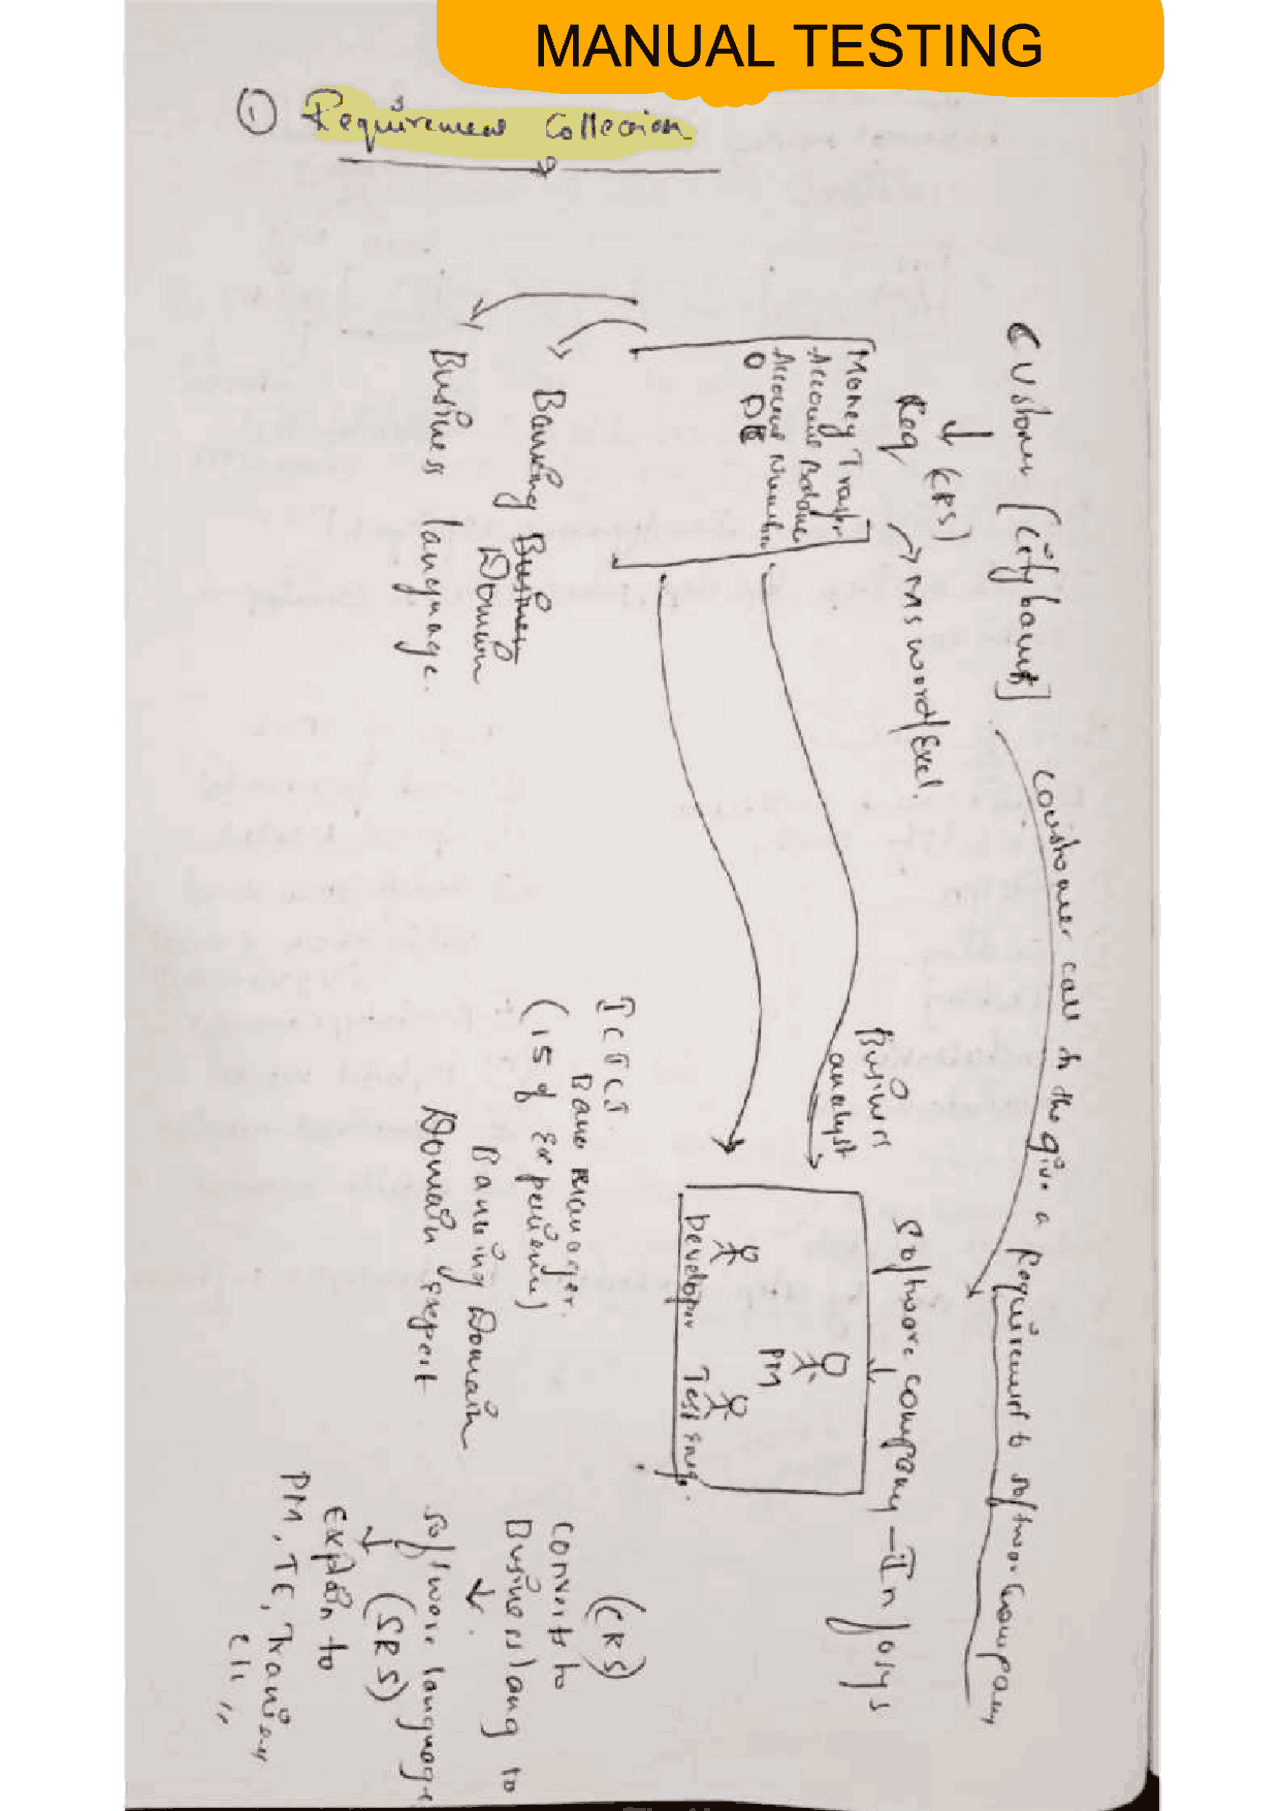 MANUAL TESTING
① Requirement Collection
Customer [City bank]
Coustomer call to the give a Requirement to software Company
↓
Req (CRS)
→ MS word/Excel.
Money Trasfr
Account Balance
Account Number
O DE
Banking Business
Domain
Business language.
Business
analyst
Software company - Infosys
PM
Developer Test Eng.
Bank Manager.
(15 of Experience)
Banking Domain
Domain Expert
(CRS)
Converts to
Business lang to
↓
Software language
↓ (SRS)
Explain to
PM, TE,